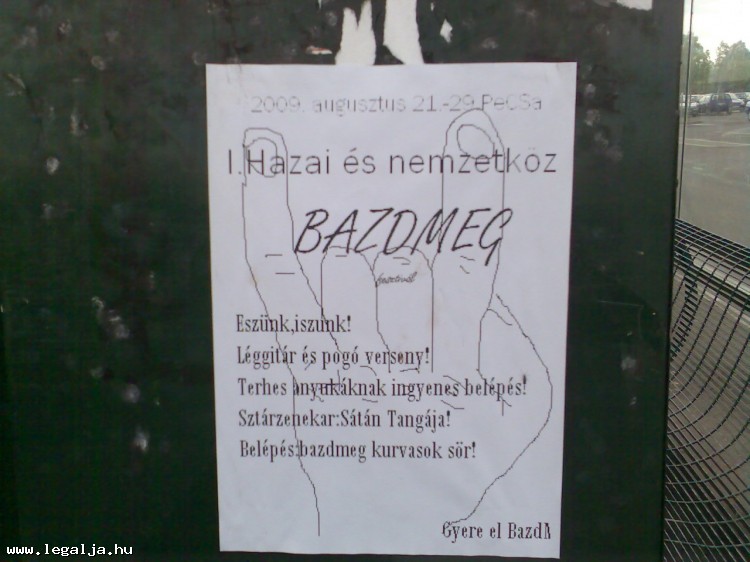 2009. augusztus 21.-29.PeCSa
I.Hazai és nemzetköz
BAZDMEG
fesztivál
Eszünk,iszunk!
Léggitár és pogó verseny!
Terhes anyukáknak ingyenes belépés!
Sztárzenekar:Sátán Tangája!
Belépés:bazdmeg kurvasok sör!
Gyere el BazdM
www.legalja.hu